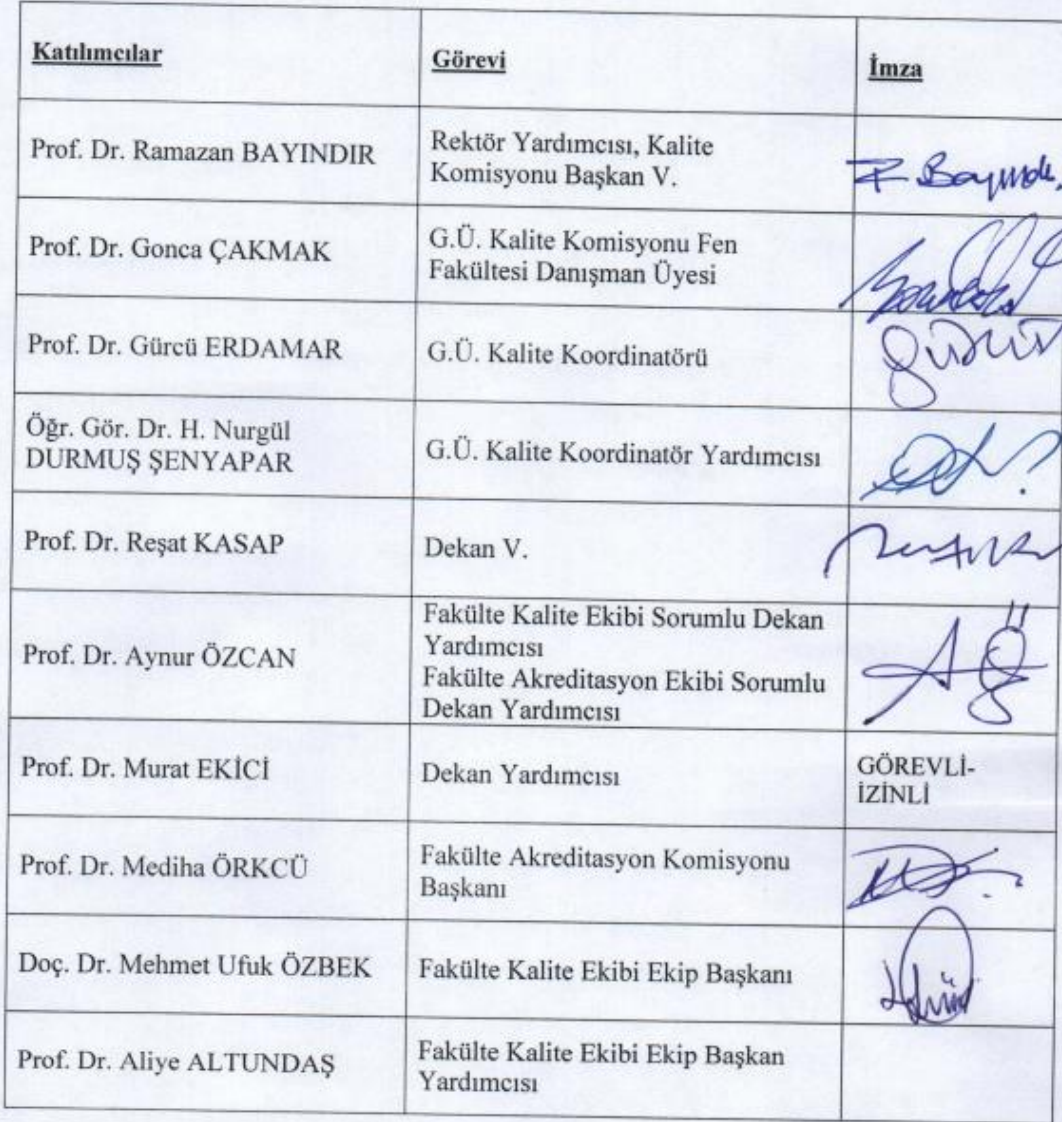 Katılımcılar
Görevi
İmza
Prof. Dr. Ramazan BAYINDIR
Rektör Yardımcısı, Kalite
Komisyonu Başkan V.
Prof. Dr. Gonca ÇAKMAK
G.Ü. Kalite Komisyonu Fen
Fakültesi Danışman Üyesi
Prof. Dr. Gürcü ERDAMAR
G.Ü. Kalite Koordinatörü
Öğr. Gör. Dr. H. Nurgül
DURMUŞ ŞENYAPAR
G.Ü. Kalite Koordinatör Yardımcısı
Prof. Dr. Reşat KASAP
Dekan V.
Prof. Dr. Aynur ÖZCAN
Fakülte Kalite Ekibi Sorumlu Dekan
Yardımcısı
Fakülte Akreditasyon Ekibi Sorumlu
Dekan Yardımcısı
Prof. Dr. Murat EKİCİ
Dekan Yardımcısı
GÖREVLİ-
İZİNLİ
Prof. Dr. Mediha ÖRKCÜ
Fakülte Akreditasyon Komisyonu
Başkanı
Doç. Dr. Mehmet Ufuk ÖZBEK
Fakülte Kalite Ekibi Ekip Başkanı
Prof. Dr. Aliye ALTUNDAŞ
Fakülte Kalite Ekibi Ekip Başkan
Yardımcısı